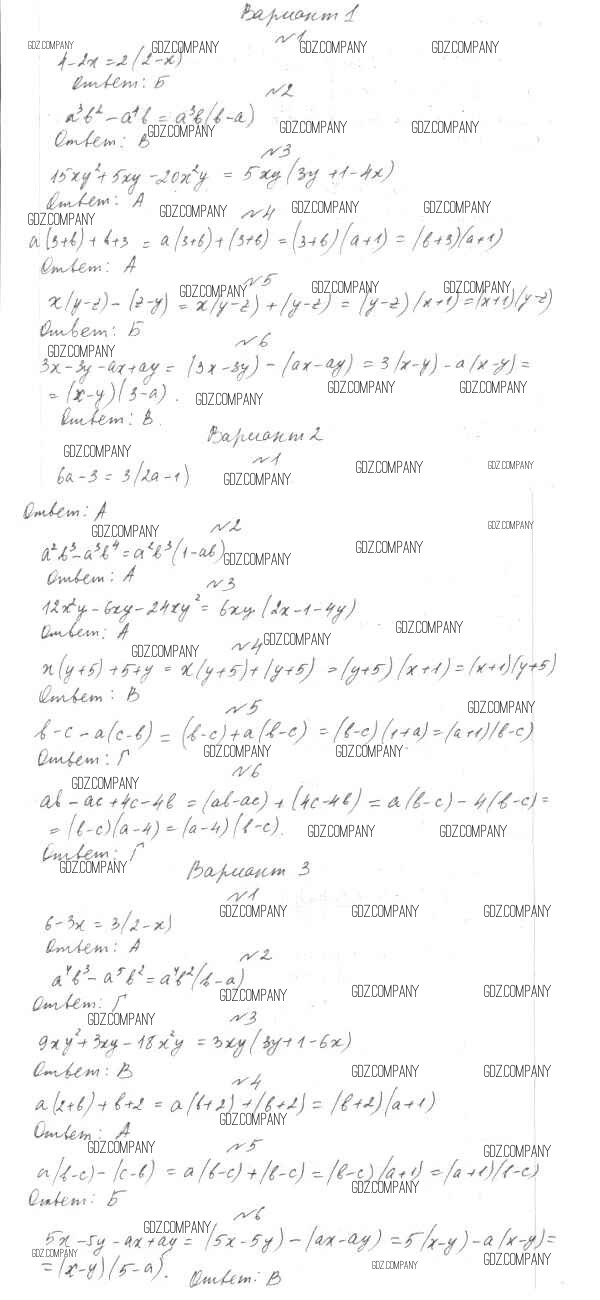 Вариант 1
№1
4-2x=2(2-x)
Ответ: Б
№2
a³b²-a⁴b=a³b(b-a)
Ответ: В
№3
15xy²+5xy-20x²y=5xy(3y+1-4x)
Ответ: А
№4
a(3+b)+b+3=a(3+b)+(3+b)=(3+b)(a+1)=(b+3)(a+1)
Ответ: А
№5
x(y-z)-(z-y)=x(y-z)+(y-z)=(y-z)(x+1)=(x+1)(y-z)
Ответ: Б
№6
3x-3y-ax+ay=(3x-3y)-(ax-ay)=3(x-y)-a(x-y)=
=(x-y)(3-a).
Ответ: В.
Вариант 2
№1
6a-3=3(2a-1)
Ответ: А
№2
a²b³-a³b⁴=a²b³(1-ab)
Ответ: А
№3
12x²y-6xy-24xy²=6xy(2x-1-4y)
Ответ: А
№4
x(y+5)+5+y=x(y+5)+(y+5)=(y+5)(x+1)=(x+1)(y+5)
Ответ: В
№5
b-c-a(c-b)=(b-c)+a(b-c)=(b-c)(1+a)=(a+1)(b-c)
Ответ: Г
№6
ab-ac+4c-4b=(ab-ac)+(4c-4b)=a(b-c)-4(b-c)=
=(b-c)(a-4)=(a-4)(b-c).
Ответ: Г
Вариант 3
№1
6-3x=3(2-x)
Ответ: А
№2
a⁴b³-a⁵b²=a⁴b²(b-a)
Ответ: Г
№3
9xy²+3xy-18x²y=3xy(3y+1-6x)
Ответ: В
№4
a(2+b)+b+2=a(b+2)+(b+2)=(b+2)(a+1)
Ответ: А
№5
a(b-c)-(c-b)=a(b-c)+(b-c)=(b-c)(a+1)=(a+1)(b-c)
Ответ: Б
№6
5x-5y-ax+ay=(5x-5y)-(ax-ay)=5(x-y)-a(x-y)=
=(x-y)(5-a). Ответ: В
GDZ.COMPANY